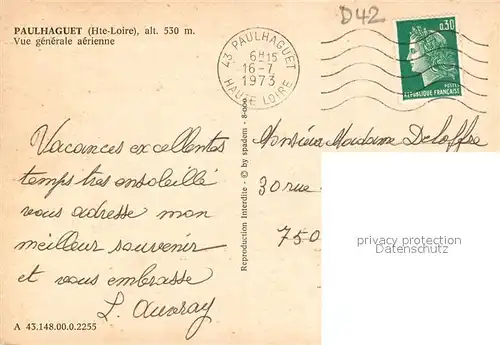 D42
PAULHAGUET (Hte-Loire), alt. 530 m.
Vue générale aérienne
43 PAULHAGUET
6H15
16-7
1973
HAUTE LOIRE
0,30
POSTES
RÉPUBLIQUE FRANÇAISE
Vacances excellentes
temps tres ensoleillé
vous adresse mon
meilleur souvenir
et vous embrasse
L. Auvray
Reproduction Interdite - © by spadem - 8-
Monsieur Madame Deloffre
30 rue
750
privacy protection
Datenschutz
A 43.148.00.0.2255